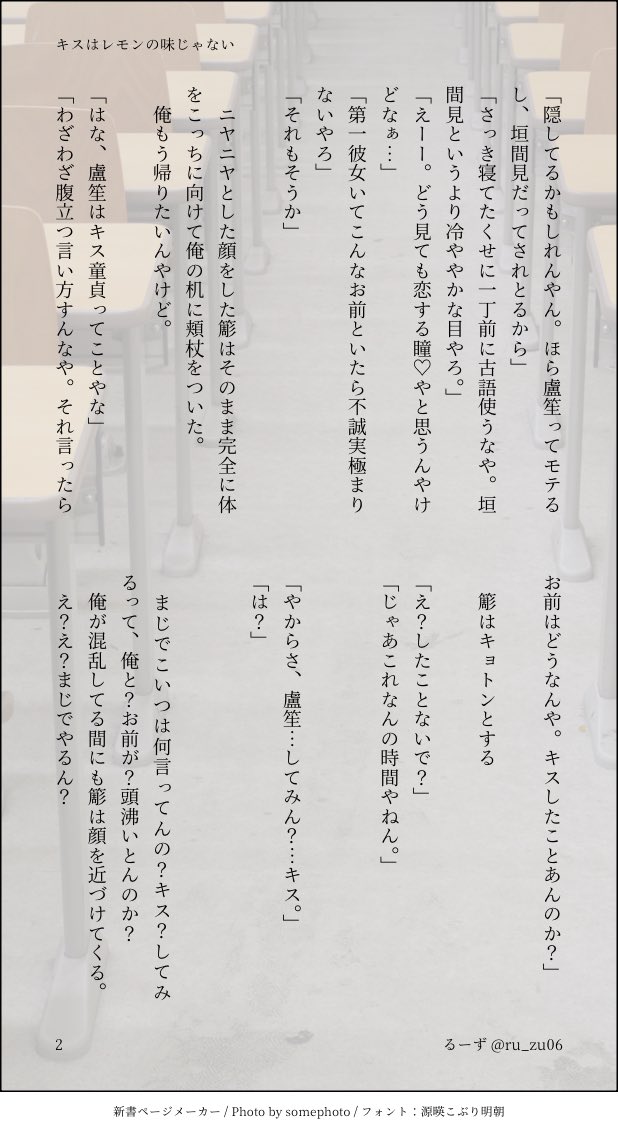 キスはレモンの味じゃない
「隠してるかもしれんやん。ほら盧笙ってモテる
し、垣間見だってされとるから」
「さっき寝てたくせに一丁前に古語使うなや。垣
間見というより冷ややかな目やろ。」
「えーー。どう見ても恋する瞳♡やと思うんやけ
どなぁ…」
「第一彼女いてこんなお前といたら不誠実極まり
ないやろ」
「それもそうか」
ニヤニヤとした顔をした簓はそのまま完全に体
をこっちに向けて俺の机に頬杖をついた。
俺もう帰りたいんやけど。
「はな、盧笙はキス童貞ってことやな」
「わざわざ腹立つ言い方すんなや。それ言ったら
お前はどうなんや。キスしたことあんのか？」
簓はキョトンとする
「え？したことないで？」
「じゃあこれなんの時間やねん。」
「やからさ、盧笙…してみん？…キス。」
「は？」
まじでこいつは何言ってんの？キス？してみ
るって、俺と？お前が？頭沸いとんのか？
俺が混乱してる間にも簓は顔を近づけてくる。
え？え？まじでやるん？
2
るーず @ru_zu06
新書ページメーカー / Photo by somephoto / フォント：源暎こぶり明朝